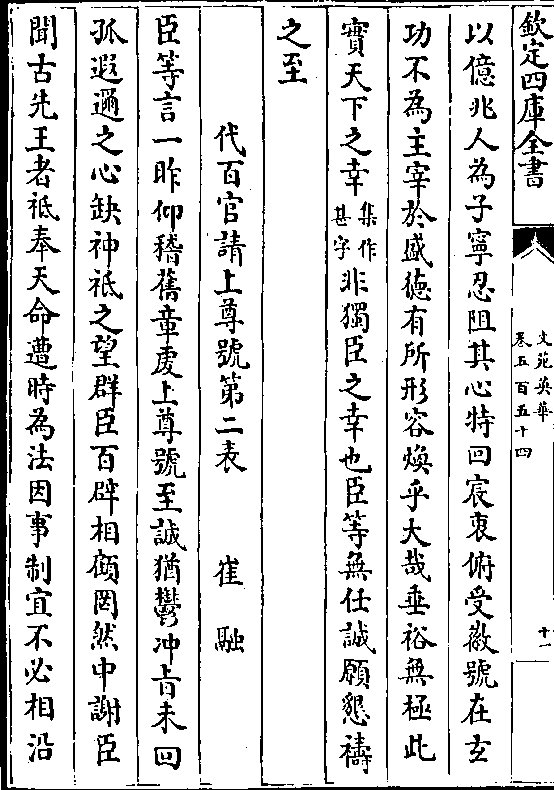 欽定四庫全書
文苑英華
卷五百五十四
十一
以億兆人為子寧忍阻其心特回宸衷俯受徽號在玄
功不為主宰於盛徳有所形容煥乎大哉垂裕無極此
實天下之幸集作甚字非獨臣之幸也臣等無任誠願懇禱
之至
代百官請上尊號第二表　崔融
臣等言一昨仰稽舊章虔上尊號至誠猶鬱冲旨未回
孤遐邇之心缺神祗之望群臣百辟相顧罔然中謝臣
聞古先王者祗奉天命遭時為法因事制宜不必相沿